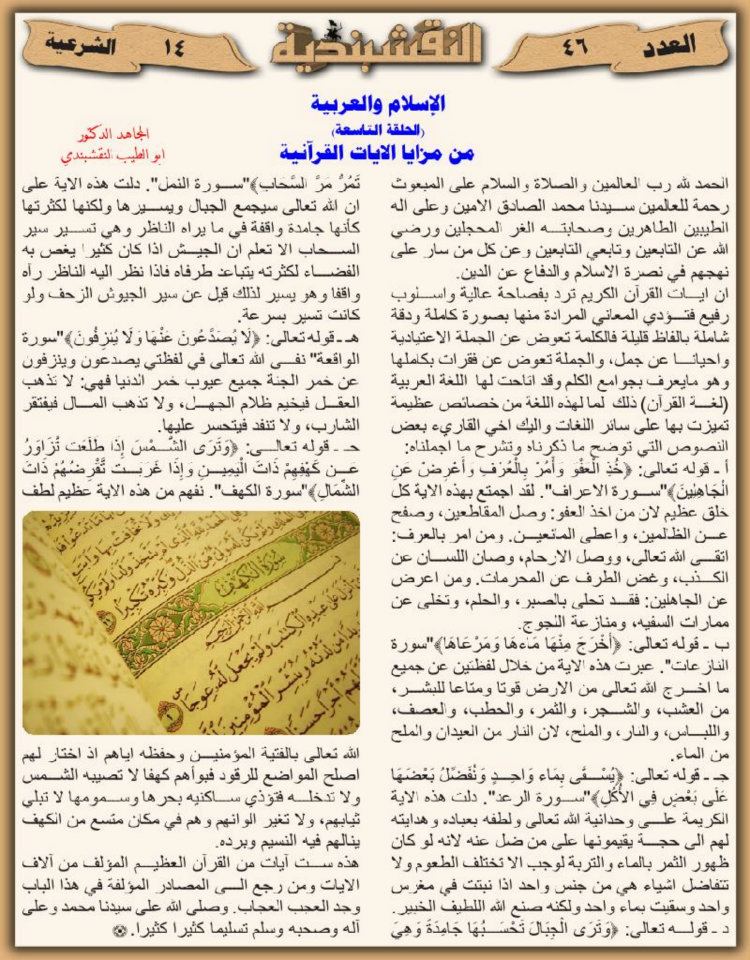 العدد
٤٦
النقشبندية
١٤
الشرعية
الإسلام والعربية
(الحلقة التاسعة)
من مزايا الايات القرآنية
المجاهد الدكتور
ابو الطيب النقشبندي
الحمد لله رب العالمين والصلاة والسلام على المبعوث
رحمة للعالمين سيدنا محمد الصادق الامين وعلى اله
الطيبين الطاهرين وصحابته الغر المحجلين ورضي
الله عن التابعين وتابعي التابعين وعن كل من سار على
نهجهم في نصرة الاسلام والدفاع عن الدين.
ان ايات القرآن الكريم ترد بفصاحة عالية واسلوب
رفيع فتؤدي المعاني المرادة منها بصورة كاملة ودقة
شاملة بالفاظ قليلة فالكلمة تعوض عن الجملة الاعتيادية
واحيانا عن جمل، والجملة تعوض عن فقرات بكاملها
وهو مايعرف بجوامع الكلم وقد اتاحت لها اللغة العربية
(لغة القرآن) ذلك لما لهذه اللغة من خصائص عظيمة
تميزت بها على سائر اللغات واليك اخي القاريء بعض
النصوص التي توضح ما ذكرناه وتشرح ما اجملناه:
أ ـ قوله تعالى: ﴿خُذِ الْعَفْوَ وَأْمُرْ بِالْعُرْفِ وَأَعْرِضْ عَنِ
الْجَاهِلِينَ﴾"سورة الاعراف". لقد اجتمع بهذه الاية كل
خلق عظيم لان من اخذ العفو: وصل المقاطعين، وصفح
عن الظالمين، واعطى المانعين. ومن امر بالعرف:
اتقى الله تعالى، ووصل الارحام، وصان اللسان عن
الكذب، وغض الطرف عن المحرمات. ومن اعرض
عن الجاهلين: فقد تحلى بالصبر، والحلم، وتخلى عن
ممارات السفيه، ومنازعة اللجوج.
ب ـ قوله تعالى: ﴿أَخْرَجَ مِنْهَا مَاءَهَا وَمَرْعَاهَا﴾"سورة
النازعات". عبرت هذه الاية من خلال لفظتين عن جميع
ما اخرج الله تعالى من الارض قوتا ومتاعا للبشر،
من العشب، والشجر، والثمر، والحطب، والعصف،
واللباس، والنار، والملح، لان النار من العيدان والملح
من الماء.
جـ ـ قوله تعالى: ﴿يُسْقَى بِمَاءٍ وَاحِدٍ وَنُفَضِّلُ بَعْضَهَا
عَلَى بَعْضٍ فِي الْأُكُلِ﴾"سورة الرعد". دلت هذه الاية
الكريمة على وحدانية الله تعالى ولطفه بعباده وهدايته
لهم الى حجة يقيمونها على من ضل عنه لانه لو كان
ظهور الثمر بالماء والتربة لوجب الا تختلف الطعوم ولا
تتفاضل اشياء هي من جنس واحد اذا نبتت في مغرس
واحد وسقيت بماء واحد ولكنه صنع الله اللطيف الخبير.
د ـ قوله تعالى: ﴿وَتَرَى الْجِبَالَ تَحْسَبُهَا جَامِدَةً وَهِيَ
تَمُرُّ مَرَّ السَّحَابِ﴾"سورة النمل". دلت هذه الاية على
ان الله تعالى سيجمع الجبال ويسيرها ولكنها لكثرتها
كأنها جامدة واقفة في ما يراه الناظر وهي تسير سير
السحاب الا تعلم ان الجيش اذا كان كثيرا يغص به
الفضاء لكثرته يتباعد طرفاه فاذا نظر اليه الناظر رآه
واقفا وهو يسير لذلك قيل عن سير الجيوش الزحف ولو
كانت تسير بسرعة.
هـ ـ قوله تعالى: ﴿لَا يُصَدَّعُونَ عَنْهَا وَلَا يُنزِفُونَ﴾"سورة
الواقعة" نفى الله تعالى في لفظتي يصدعون وينزفون
عن خمر الجنة جميع عيوب خمر الدنيا فهي: لا تذهب
العقل فيخيم ظلام الجهل، ولا تذهب المال فيفتقر
الشارب، ولا تنفد فيتحسر عليها.
حـ ـ قوله تعالى: ﴿وَتَرَى الشَّمْسَ إِذَا طَلَعَت تَّزَاوَرُ
عَن كَهْفِهِمْ ذَاتَ الْيَمِينِ وَإِذَا غَرَبَت تَّقْرِضُهُمْ ذَاتَ
الشِّمَالِ﴾"سورة الكهف". نفهم من هذه الاية عظيم لطف
سورة الكهف
الله تعالى بالفتية المؤمنين وحفظه اياهم اذ اختار لهم
اصلح المواضع للرقود فبوأهم كهفا لا تصيبه الشمس
ولا تدخله فتؤذي ساكنيه بحرها وسمومها لا تبلي
ثيابهم، ولا تغير الوانهم وهم في مكان متسع من الكهف
ينالهم فيه النسيم وبرده.
هذه ست آيات من القرآن العظيم المؤلف من آلاف
الايات ومن رجع الى المصادر المؤلفة في هذا الباب
وجد العجب العجاب. وصلى الله على سيدنا محمد وعلى
آله وصحبه وسلم تسليما كثيرا كثيرا.